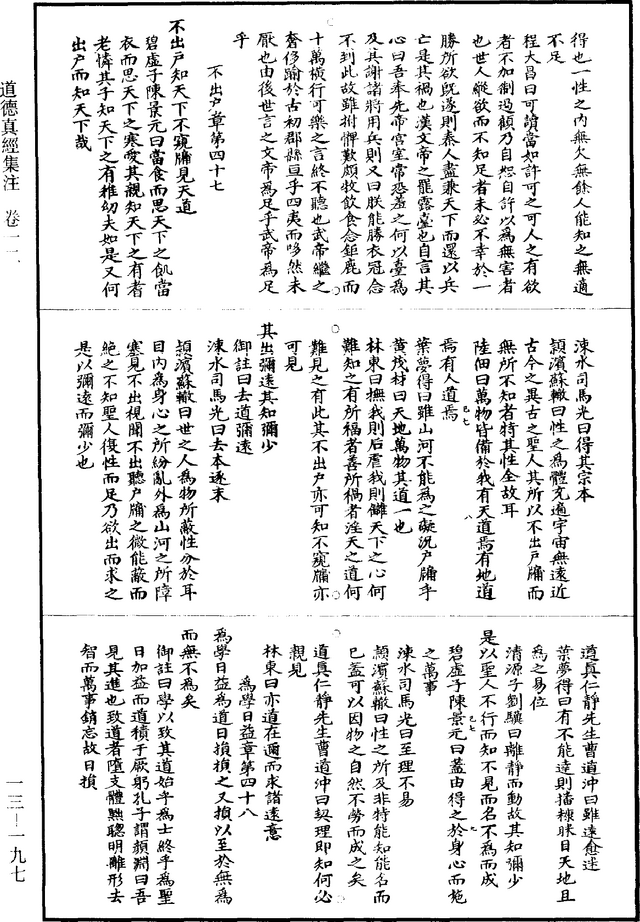 得也一性之內無欠無餘人能知之無適
不足
程大昌曰可謂當如許可之可人之有欲
者不加制過顧乃自恕自許以為無害者
也世人縱欲而不知足者未必不幸於一
勝所欲旣遂則秦人盡兼天下而還以兵
亡是其禍也漢文帝之罷露臺也自言其
心曰吾奉先帝宮室常恐羞之何以臺為
及其謝諸將用兵則又曰朕能勝衣冠念
不到此故雖拊髀歎頗牧飲食念鉅鹿而
十萬橫行可樂之言終不聽也武帝繼之
奢侈踰於古初郡縣亘乎四夷而哆然未
厭也由後世言之文帝為足乎武帝為足
乎
不出戶章第四十七
不出戶知天下不窺牖見天道
碧虛子陳景元曰當食而思天下之飢當
衣而思天下之寒愛其親知天下之有耆
老憐其子知天下之有稚幼夫如是又何
出戶而知天下哉
涑水司馬光曰得其宗本
潁濱蘇轍曰性之為體充遍宇宙無遠近
古今之異古之聖人其所以不出戶牖而
無所不知者特其性全故耳
陸佃曰萬物皆備於我有天道焉有地道
焉有人道焉
葉夢得曰雖山河不能為之礙況戶牖乎
黃茂材曰天地萬物其道一也
林東曰撫我則后虐我則讎天下之心何
難知之有所福者善所禍者淫天之道何
難見之有此其不出戶亦可知不窺牖亦
可見
其出彌遠其知彌少
御註曰去道彌遠
涑水司馬光曰去本逐末
潁濱蘇轍曰世之人為物所蔽性分於耳
目內為身心之所紛亂外為山河之所障
塞見不出視聞不出聽戶牖之微能蔽而
絕之不知聖人復性而足乃欲出而求之
是以彌遠而彌少也
道真仁靜先生曹道沖曰雖遠愈迷
葉夢得曰有不能達則播糠眯目天地且
為之易位
清源子劉驥曰離靜而動故其知彌少
是以聖人不行而知不見而名不為而成
碧虛子陳景元曰蓋由得之於身心而施
之萬事
涑水司馬光曰至理不易
潁濱蘇轍曰性之所及非特能知能名而
已蓋可以因物之自然不勞而成之矣
道真仁靜先生曹道沖曰契理即知何必
親見
林東曰亦道在邇而求諸遠意
為學日益章第四十八
為學日益為道日損損之又損以至於無為
而無不為矣
御註曰學以致其道始乎為士終乎為聖
日加益而道積于厥躬孔子謂顏淵曰吾
見其進也致道者墮支體黜聰明離形去
智而萬事銷忘故日損
道德真經集注 卷一二
一三—一九七